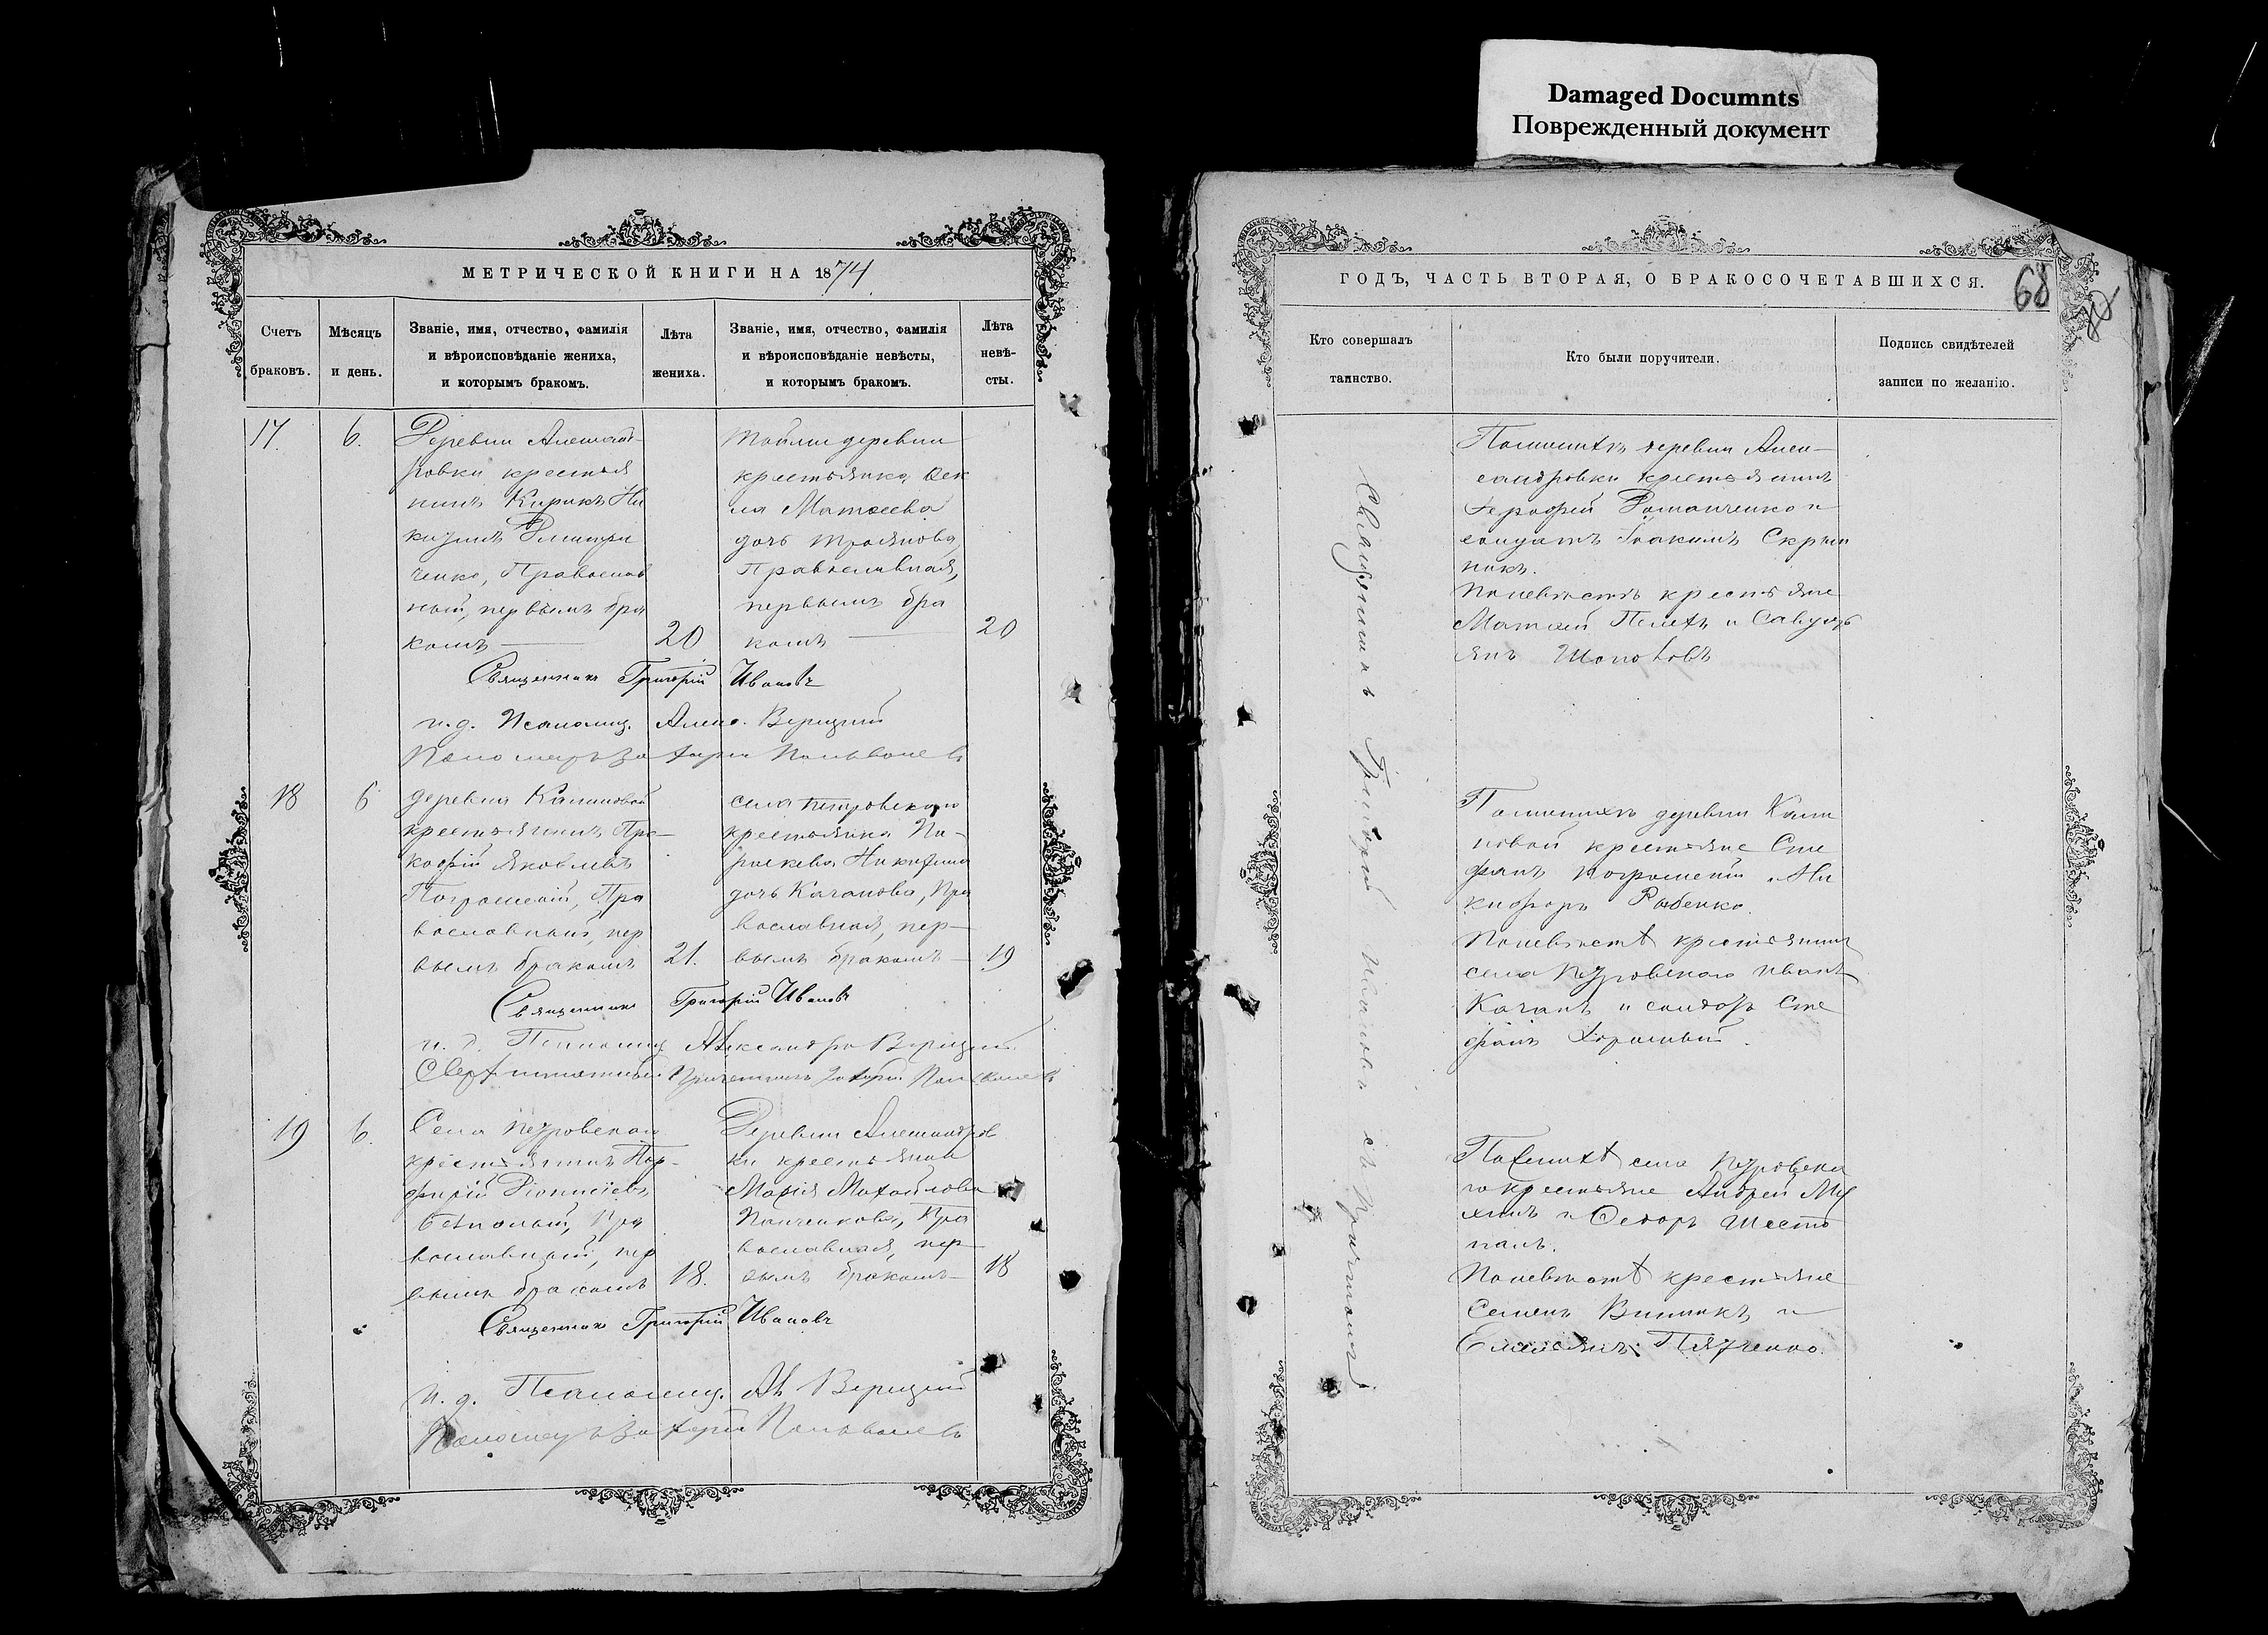 Damaged Documnts
Поврежденный документ
МЕТРИЧЕСКОЙ КНИГИ НА 1874
Счетъ браковъ.
Мѣсяцъ и день.
Званіе, имя, отчество, фамилія
и вѣроисповѣданіе жениха,
и которымъ бракомъ.
Лѣта жениха.
Званіе, имя, отчество, фамилія
и вѣроисповѣданіе невѣсты,
и которымъ бракомъ.
Лѣта невѣ-
сты.
17.
6.
Деревни Александ-
ровки крестья
нинъ Кирикъ Ни
китинъ Дмитри
ченко, Православ
ный, первымъ бра
комъ
20
Той ли деревни
крестьянка Фек
ла Матѳеева
дочь Троянова,
Православная,
первымъ бра
комъ
20
Священникъ Григорій Ивановъ
и. д. Псаломщ. Алекс. Верицкій
Пономарь Захарій
18
6
деревни Калиновой
крестьянинъ Про-
кофій Яковлевъ
Православный, пер
вымъ бракомъ
21.
села Петровскаго
крестьянка Па-
раскева Никитина
дочь Качанова, Пра
вославная, пер-
вымъ бракомъ
19
Священникъ Григорій Ивановъ
и. д. Псаломщ. Александръ Верицкій
Сверхштатный Причетникъ Захарій
19
6.
Села Петровскаго
крестьянинъ Пор-
фирій Діонисіевъ
Православный, пер
вымъ бракомъ
18.
Деревни Александров
ки крестьянка
Марія Михайлова
Панченкова, Пра
вославная, пер-
вымъ бракомъ
18
Священникъ Григорій Ивановъ
и. д. Псаломщ. Ал. Верицкій
Пономарь Захарій
ГОДЪ, ЧАСТЬ ВТОРАЯ, О БРАКОСОЧЕТАВШИХСЯ.
68
Кто совершалъ
таинство.
Кто были поручители.
Подпись свидѣтелей
записи по желанію.
Священникъ Григорій Ивановъ съ Причтомъ
По женихѣ деревни Алек-
сандровки крестьянинъ
Романченко и
солдатъ Іоакимъ Скрып
никъ.
По невѣстѣ крестьяне
Матѳей Пелехъ и
Шаповаловъ
По женихѣ деревни Кали
новой крестьяне Сте
фанъ и Ни
кифоръ Рабенко.
По невѣстѣ крестьянинъ
села Петровскаго Иванъ
Качанъ и солдатъ Сте
фанъ Хорошый.
По женихѣ села Петровска
го крестьяне Андрей
и Ѳедоръ Шесто
палъ.
По невѣстѣ крестьяне
Семенъ Винникъ и
Емеліянъ Панченко.